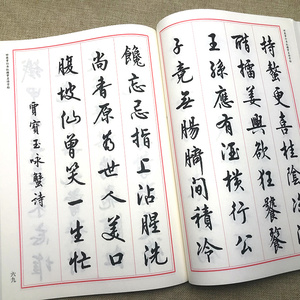 持螯更
醋擂姜興欲狂饕餮
王孫應有酒橫行公
子竟無腸臍間積冷
饞忘忌指上沾腥洗
尚香原為世人美口
腹坡仙曾笑一生忙
賈寶玉詠蟹詩
六九